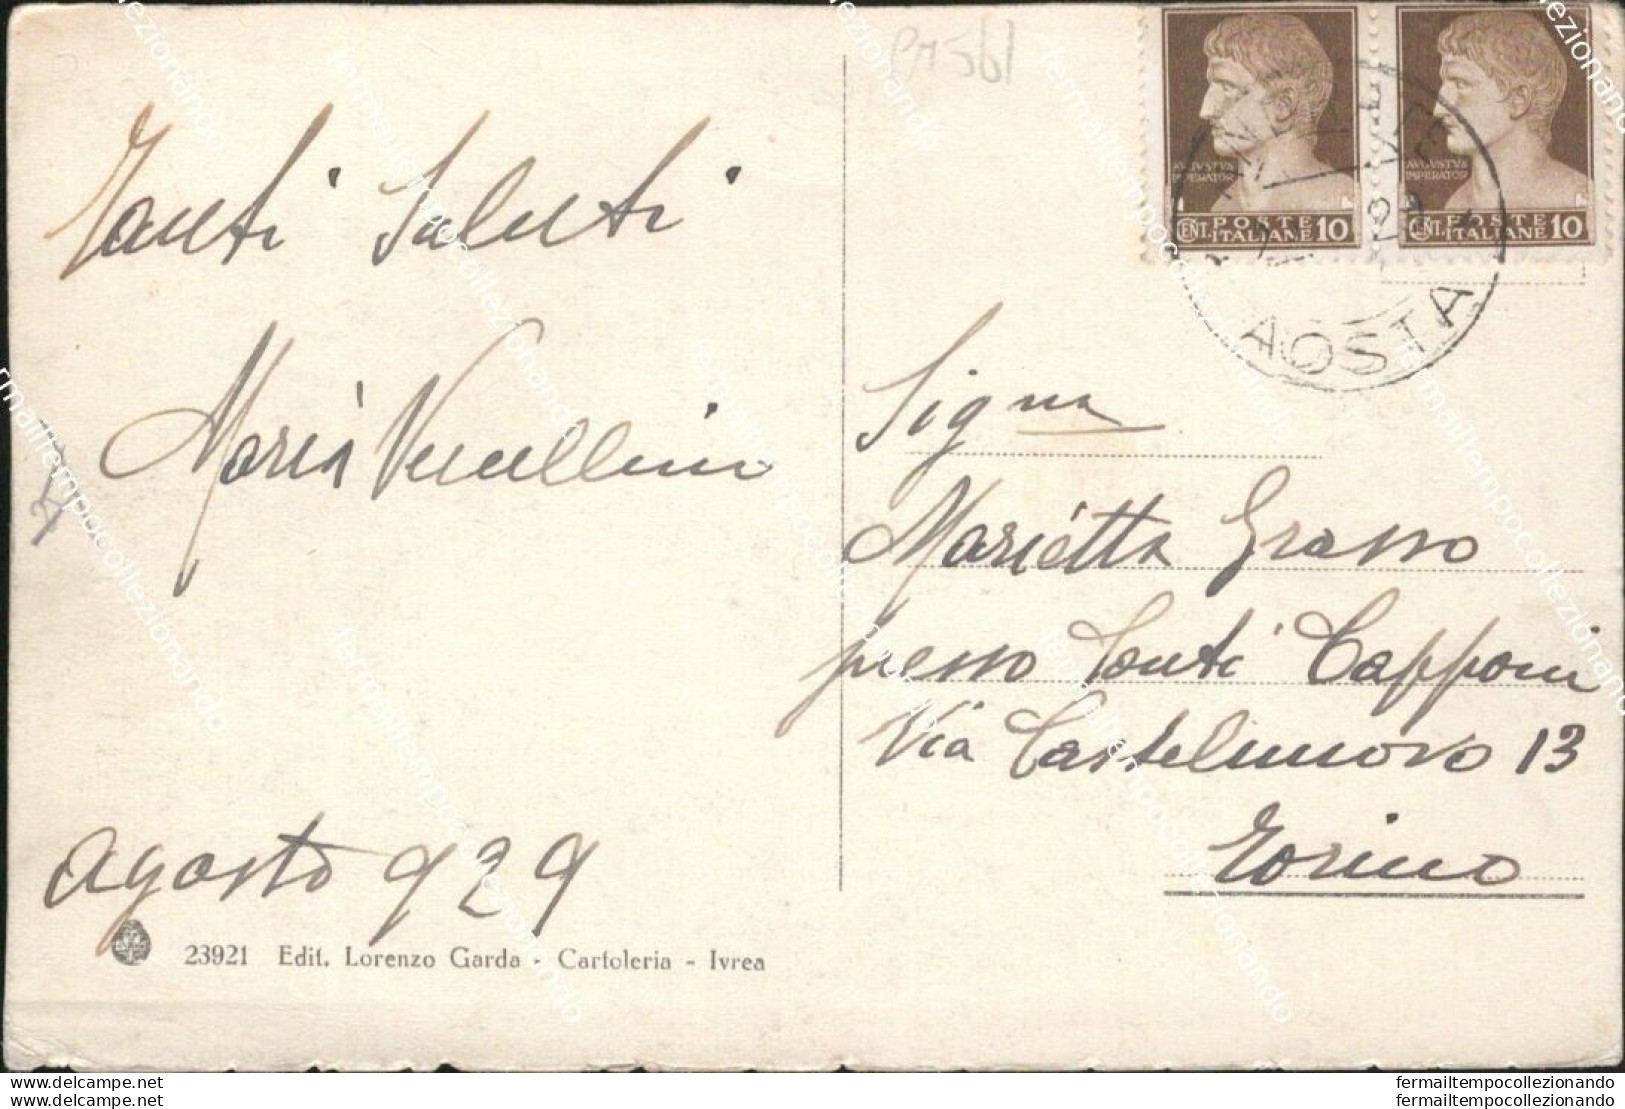 Tanti Saluti
Maria Vercellini
agosto 929
23921 Edit. Lorenzo Garda - Cartoleria - Ivrea
AVGVSTVS
IMPERATOR
CENT. POSTE
ITALIANE 10
AVGVSTVS
IMPERATOR
CENT. POSTE
ITALIANE 10
AOSTA
Signa
Marietta Grasso
presso Conti Capponi
Via Castelnuovo 13
Torino
www.delcampe.net
www.delcampe.net
fermailtempocollezionando
fermailtempocollezionando